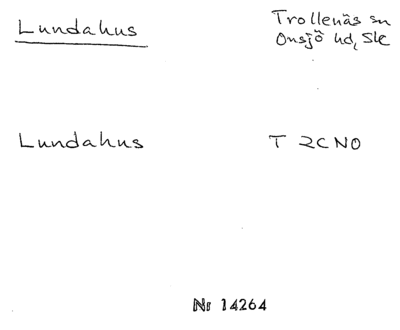 Lundahus
Trollenäs sn
Onsjö hd, Sk
Lundahus
T 2CNO
Nr 14264